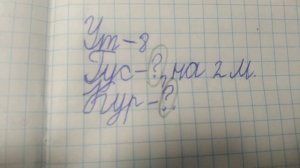 Ут – 8
Гус – ?, на 2 м.
Кур – ?